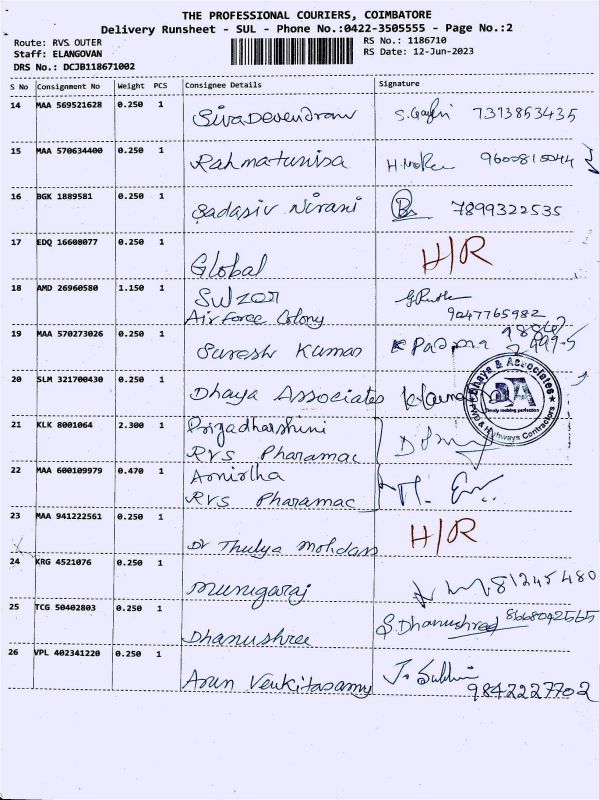 THE PROFESSIONAL COURIERS, COIMBATORE
Delivery Runsheet - SUL - Phone No.:0422-3505555 - Page No.:2
Route: RVS OUTER RS No.: 1186710
Staff: ELANGOVAN RS Date: 12-Jun-2023
DRS No.: DCJB118671002
S No Consignment No Weight PCS Consignee Details Signature
14 MAA 569521628 0.250 1
SivaDevendran 7313853435
15 MAA 570634400 0.250 1
Rahmatunisa
16 BGK 1889581 0.250 1
Sadasiv Nirani 7899322535
17 EDQ 16608077 0.250 1
Global H/R
18 AMD 26960580 1.150 1 Sulzer
Air Force Colony 9047765982
19 MAA 570273026 0.250 1
Suresh Kumar
20 SLM 321700430 0.250 1
Dhaya Associates
Dhaya & Associates
DA
timely making perfection
Highways Contractors
21 KLK 8001064 2.300 1 Priyadharshini
RVS Pharamac
22 MAA 600109979 0.470 1
RVS Pharamac
23 MAA 941222561 0.250 1 H/R
Dr Thulya Mohdass
24 KRG 4521076 0.250 1 81245480
Murugaraj
25 TCG 50402803 0.250 1
Dhanushree S. Dhanushree 8668042565
26 VPL 402341220 0.250 1
Arun Venkitasamy 9842227702